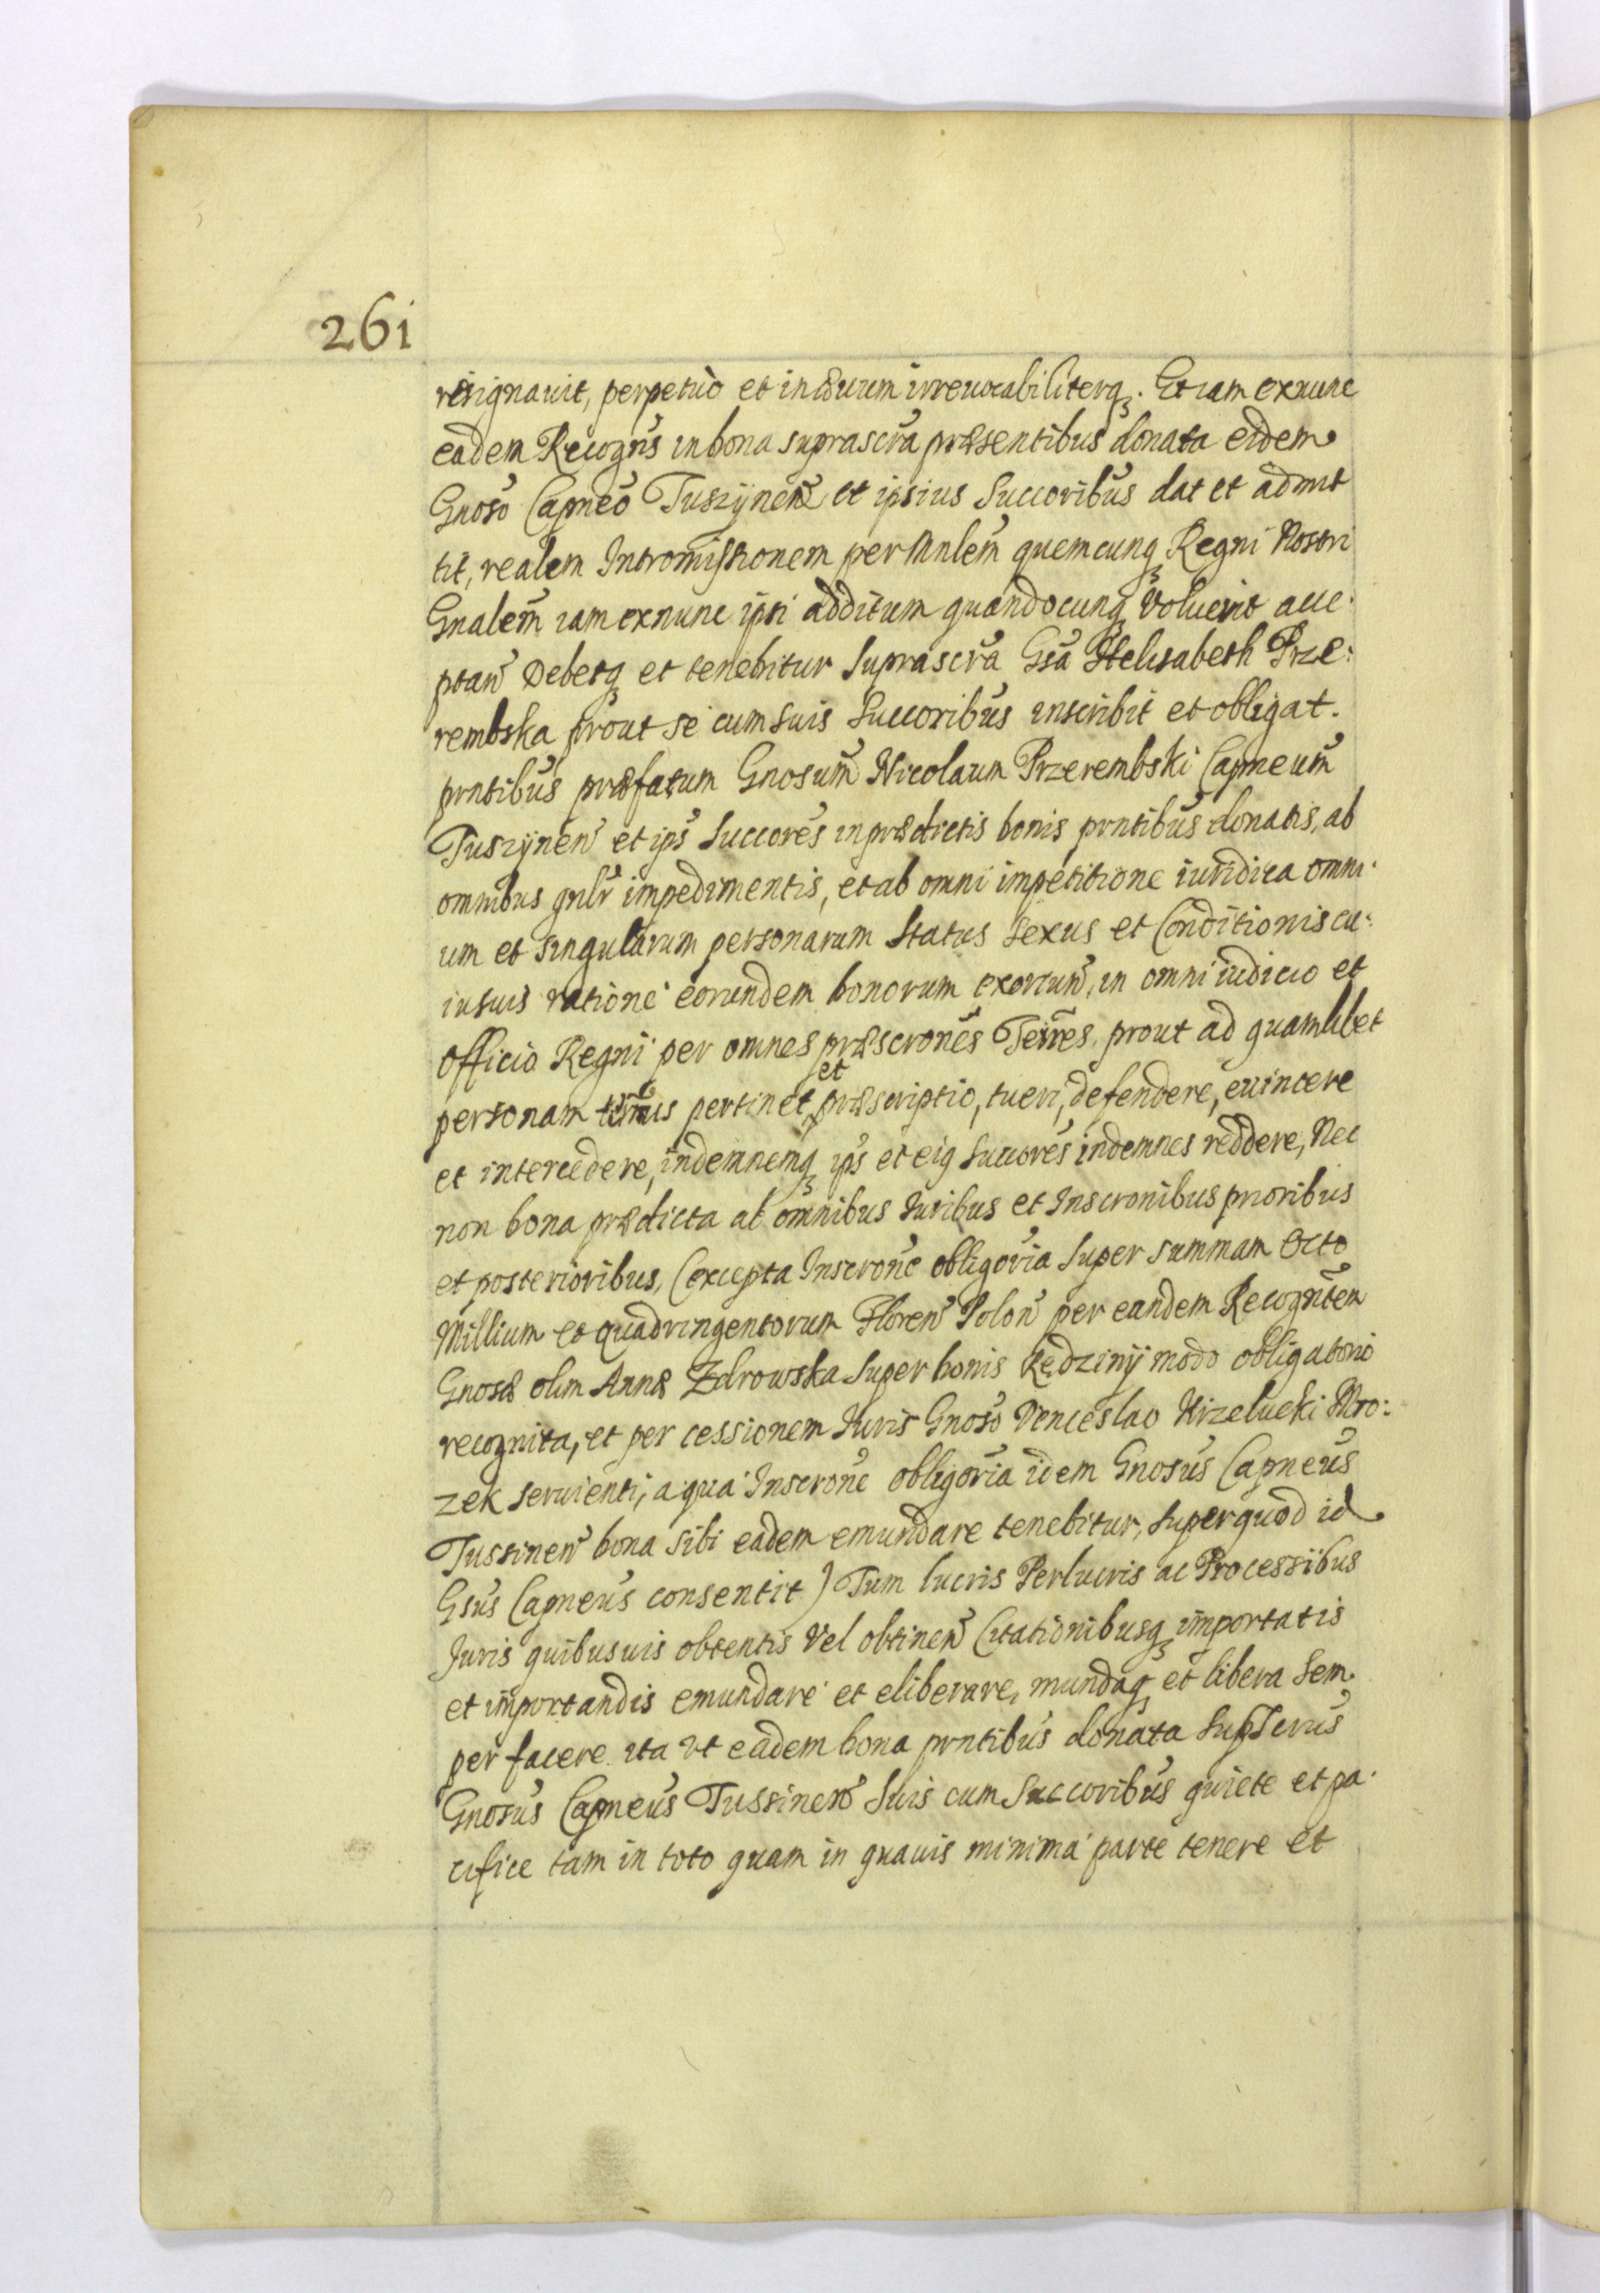 261
resignauit, perpetuò et in æuum irreuocabiliterq. Et iam exnunc
eadem Recogns in bona suprascra præsentibus donata eidem
Gnoso Capneo Tuszynen et ipsius Succoribus dat et admit
tit, realem Intromissionem per Mnlem quemcunq Regni Nostri
Gnalem iam exnunc ipsi additum quandocunq Voluerit acce:
ptan Debetq et tenebitur Suprascra Gsa Helisabeth Prze:
rembska prout se cum Suis Succoribus inscribit et obligat.
prntibus præfatum Gnosum Nicolaum Przerembski Capneum
Tuszynen et ips Succores in prædictis bonis prntibus donatis, ab
omnibus gnlr impedimentis, et ab omni impetitione iuridica omni:
um et singularum personarum Status Sexus et Conditionis cu:
iusuis ratione eorundem bonorum exortun, in omni iudicio et
Officio Regni per omnes præscrones Terres. prout ad quamlibet
personam terrius pertinet et præscriptio, tueri, defendere, euincere
et intercedere, indemnemq ips et eiq Succores indemnes reddere, Nec
non bona prædicta ab omnibus Iuribus et Inscronibus prioribus
et posterioribus, (excepta Inscrone obligoria Super summam Octo
Millium et quadringentorum Floren Polon per eandem Recognitem
Gnosæ olim Annæ Zdrowska Super bonis Kędziny modo obligatorio
recognita, et per cessionem Iuris Gnoso Venceslao Krzelucki Mro:
zek seruienti, a qua Inscrone obligoria idem Gnosus Capneus
Tussinen bona sibi eadem emundare tenebitur, Super quod id
Gsus Capneus consentit) Tum lucris Perlucris ac Processibus
Iuris quibusuis obtentis Vel obtinen Citationibusq importatis
et importandis emundare et eliberare, mundaq et libera Sem
per facere ita Vt eadem bona prntibus donata Supscrus
Gnosus Capneus Tussinen Suis cum Succoribus quiete et pa:
cifice tam in toto quam in quauis minima parte tenere et